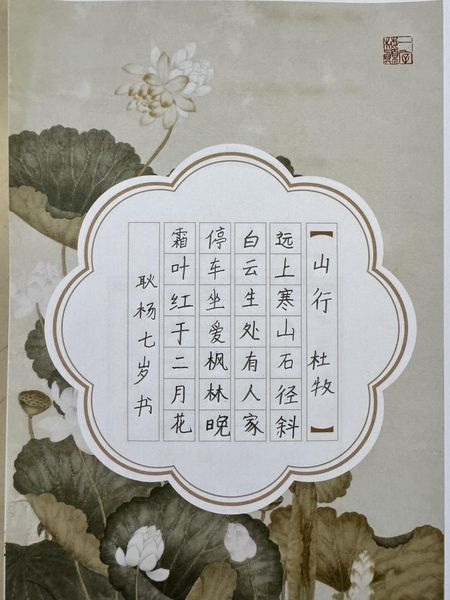 【山行 杜牧】
远上寒山石径斜
白云生处有人家
停车坐爱枫林晚
霜叶红于二月花
耿杨七岁书